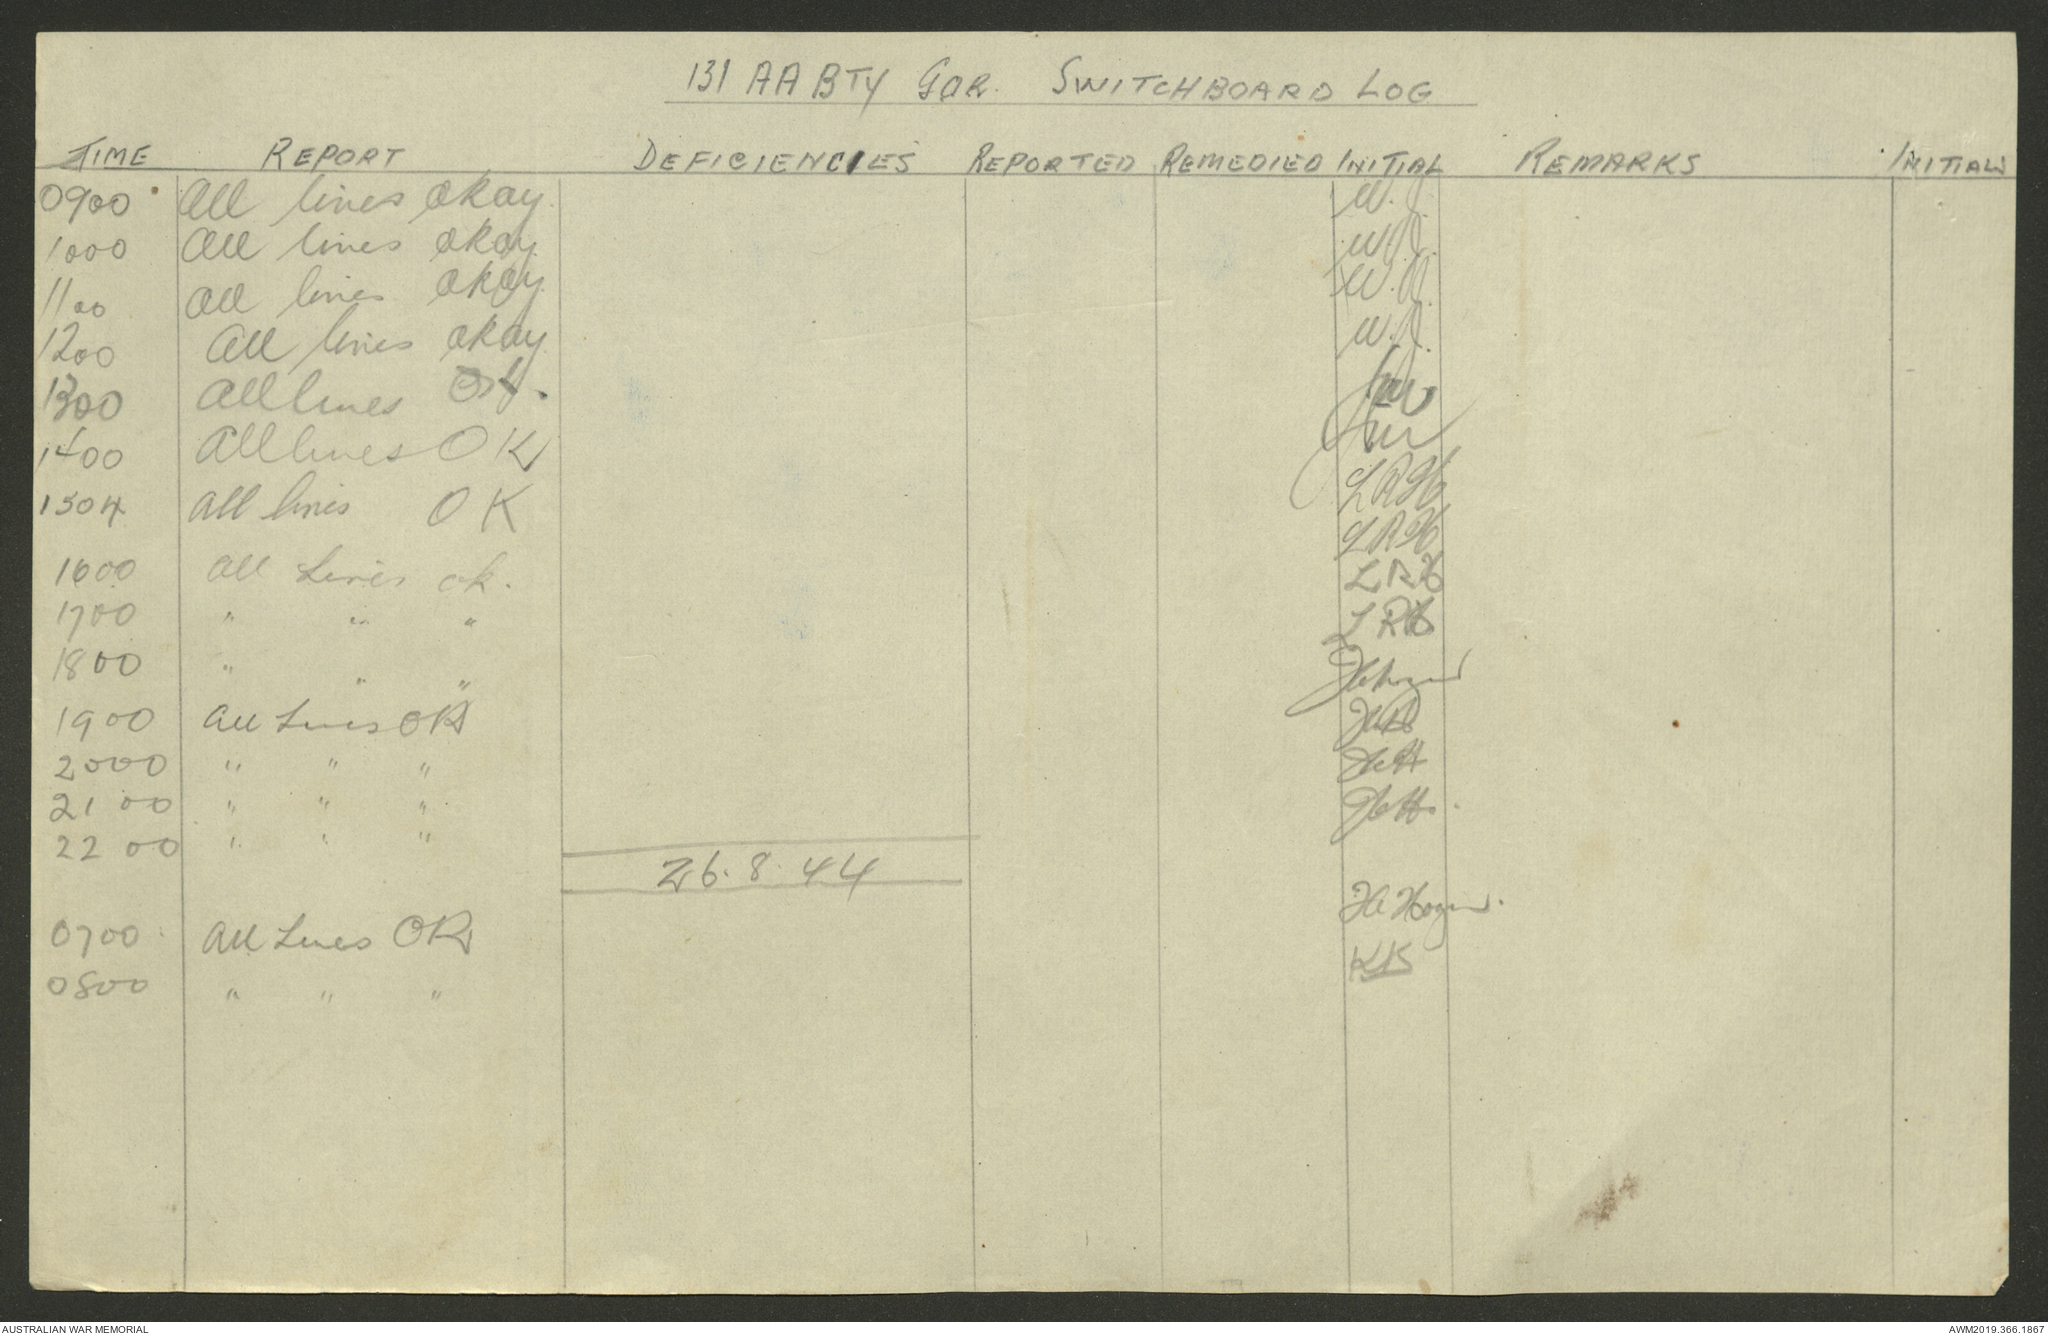 131 AA BTY GAR. SWITCHBOARD LOG
TIME REPORT DEFICIENCIES REPORTED REMEDIED INITIAL REMARKS INITIALS
0900 All lines okay. W.J.
1000 All lines okay. W.J.
1100 All lines okay. W.J.
1200 All lines okay W.J.
1300 All lines OK.
1400 All lines OK
1504 All lines OK LRH
LRH
1600 All Lines ok. LRH
1700 " " " LRH
1800 " " "
1900 All Lines OK
2000 " " "
2100 " " "
2200 " " "
26.8.44
0700 All Lines OK
0800 " " " KB
AUSTRALIAN WAR MEMORIAL AWM2019.366.1867